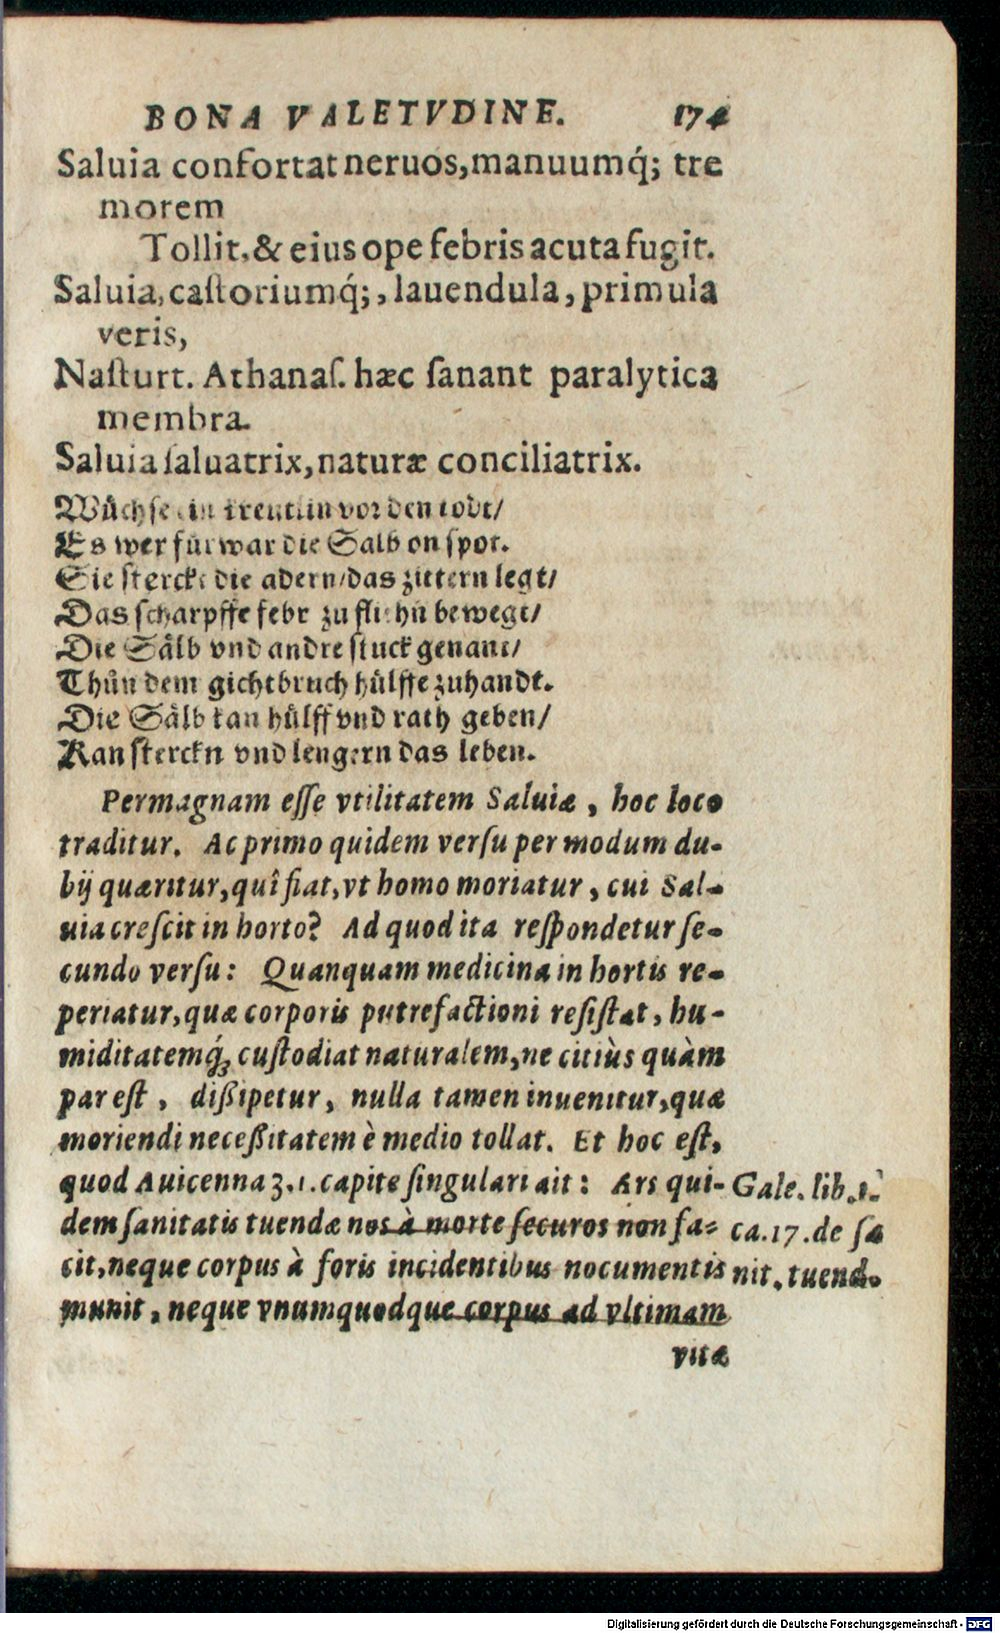 BONA VALETVDINE. 174
Saluia confortat neruos, manuumq́; tre
morem
Tollit, & eius ope febris acuta fugit.
Saluia, caſtoriumq́;, lauendula, primula
veris,
Naſturt. Athanaſ. hæc ſanant paralytica
membra.
Saluia ſaluatrix, naturæ conciliatrix.
Wuͤchſe ein kreutlin vor den todt/
Es wer fuͤrwar die Salb on ſpot.
Sie ſterckt die adern/das zittern legt/
Das ſcharpffe febr zu fliehn bewegt/
Die Saͤlb vnd andre ſtuck genant/
Thuͤn dem gichtbruch huͤlffe zuhandt.
Die Saͤlb kan huͤlff vnd rath geben/
Kan ſterckn vnd lengern das leben.
Permagnam eſſe vtilitatem Saluiæ, hoc loco
traditur. Ac primo quidem verſu per modum du-
bij quæritur, quî fiat, vt homo moriatur, cui Sal-
uia creſcit in horto? Ad quod ita reſpondetur ſe-
cundo verſu: Quanquam medicina in hortis re-
periatur, quæ corporis putrefactioni reſiſtat, hu-
miditatemq́; cuſtodiat naturalem, ne citiùs quàm
par eſt, diſsipetur, nulla tamen inuenitur, quæ
moriendi neceſsitatem è medio tollat. Et hoc eſt,
quod Auicenna 3.1. capite ſingulari ait: Ars qui-
dem ſanitatis tuendæ nos à morte ſecuros non fa-
cit, neque corpus à foris incidentibus nocumentis
munit, neque vnumquodque corpus ad vltimam
vitæ
Gale. lib. 1.
ca. 17. de ſa
nit. tuend.
Digitalisierung gefördert durch die Deutsche Forschungsgemeinschaft - DFG